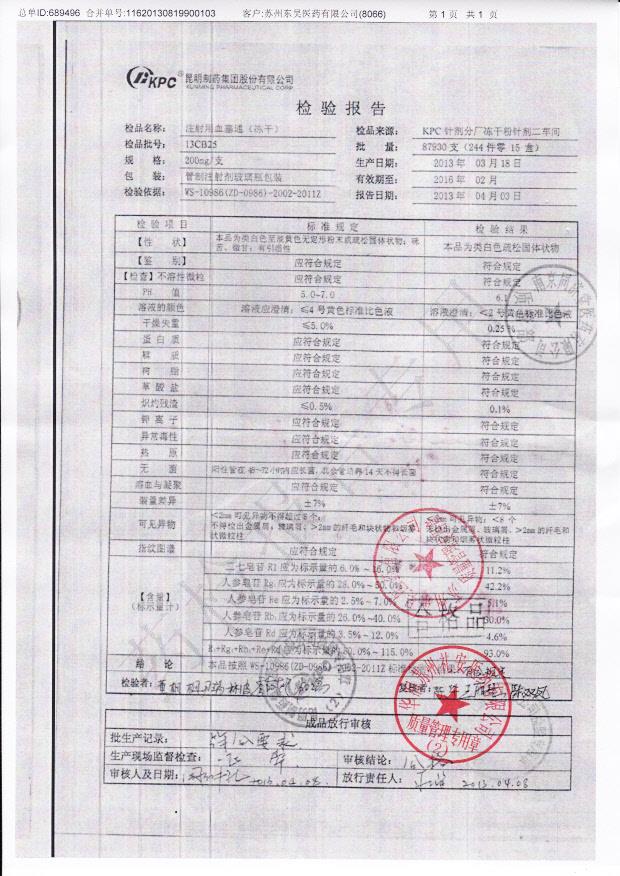 总单ID:689496 合并单号:11620130819900103 客户:苏州东吴医药有限公司(8066) 第 1 页 共 1 页
KPC® 昆明制药集团股份有限公司
KUNMING PHARMACEUTICAL CORP
检验报告
检品名称: 注射用血塞通(冻干) 检品来源: KPC 针剂分厂冻干粉针剂二车间
检品批号: 13CB25 批 量: 87930 支(244 件零 15 盒)
规 格: 200mg/支 生产日期: 2013 年 03 月 18 日
包 装: 管制注射剂玻璃瓶包装 有效期至: 2016 年 02 月
检验依据: WS-10986(ZD-0986)-2002-2011Z 报告日期: 2013 年 04 月 03 日
检验项目 标准规定 检验结果
【性 状】 本品为类白色至淡黄色无定形粉末或疏松固体状物;味苦、微甘;有引湿性 本品为类白色疏松固体状物
【鉴 别】 应符合规定 符合规定
【检查】不溶性微粒 应符合规定 符合规定
PH 值 5.0-7.0 6.
溶液的颜色 溶液应澄清;≤4 号黄色标准比色液 溶液澄清;<2 号黄色标准比色液
干燥失重 ≤5.0% 0.25%
蛋白质 应符合规定 符合规定
鞣 质 应符合规定 符合规定
树 脂 应符合规定 符合规定
草酸盐 应符合规定 符合规定
炽灼残渣 ≤0.5% 0.1%
钾离子 应符合规定 符合规定
异常毒性 应符合规定 符合规定
热 原 应符合规定 符合规定
无 菌 符合规定
溶血与凝聚 应符合规定 符合规定
装量差异 ±7% ±7%
可见异物 <2mm 可见异物不得超过 8 个; 可见异物: <8 个
不得检出金属屑、玻璃屑、>2mm 的纤毛和块状物和烟雾状微粒柱 无检出金属屑、玻璃屑、>2mm 的纤毛和块状物和烟雾状微粒柱
指纹图谱 应符合规定 符合规定
【含量】
(标示量计)
三七皂苷 R1 应为标示量的 6.0%~16.0% 11.2%
人参皂苷 Rg₁ 应为标示量的 28.0%~50.0% 42.2%
人参皂苷 Re 应为标示量的 2.5%~7.0% 5.1%
人参皂苷 Rb₁ 应为标示量的 26.0%~40.0% 30.0%
人参皂苷 Rd 应为标示量的 3.5%~12.0% 4.6%
R₁+Rg₁+Rb₁+Re+Rd 应为标示量的 80.0%~115.0% 93.0%
合格品
结 论 本品按照 WS-10986(ZD-0986)-2002-2011Z 标准
检验者:
复核者:
华润苏州礼安医药有限公司
质量管理专用章
(2)
成品放行审核
批生产记录: 符合要求
生产现场监督检查: 审核结论: 合格
审核人及日期: 2013.04.08 放行责任人: 2013.04.08